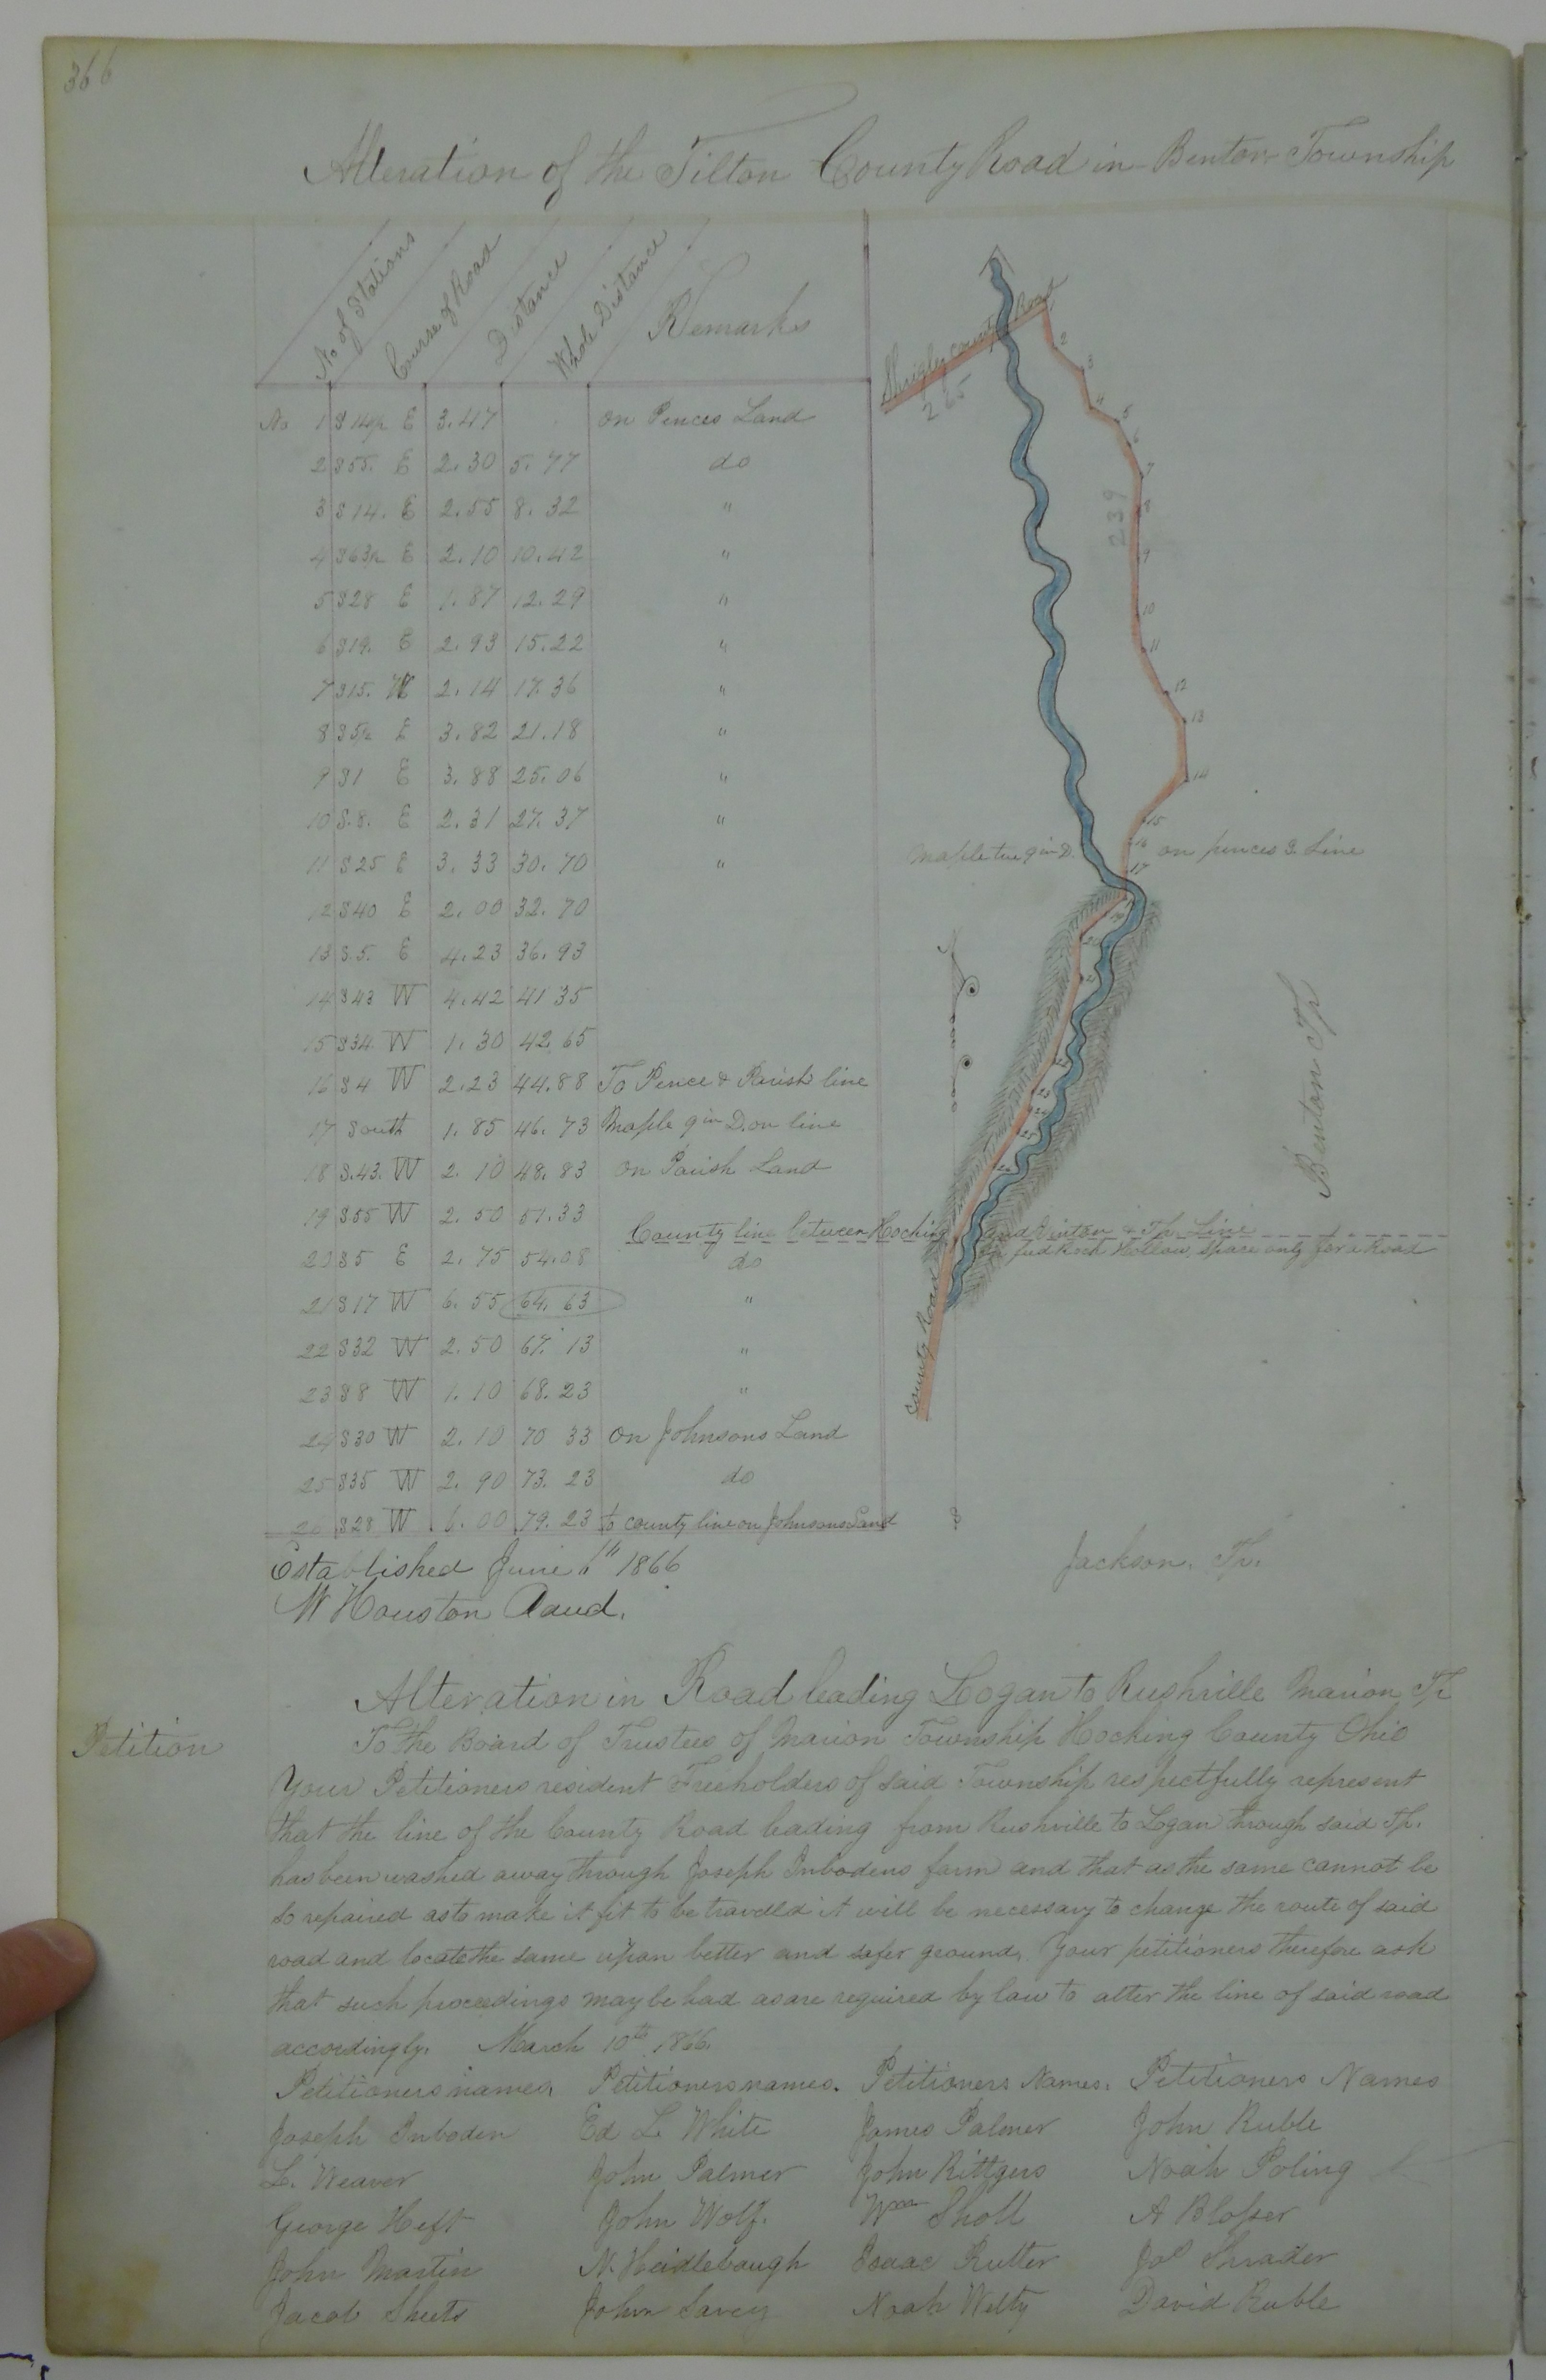 366
Alteration of the Tilton County Road in Benton Township
No of Stations Course of Road Distance Whole Distance Remarks
No 1 S 14½ E 3.47 on Pences Land
2 S55. E 2.30 5.77 do
3 S14. E 2.55 8.32 "
4 S63½ E 2.10 10.42 "
5 S28 E 1.87 12.29 "
6 S19. E 2.93 15.22 "
7 S15. W 2.14 17.36 "
8 S5½ E 3.82 21.18 "
9 S1 E 3.88 25.06 "
10 S.8. E 2.31 27.37 "
11 S25 E 3.33 30.70 "
12 S40 E 2.00 32.70
13 S.5. E 4.23 36.93
14 S43 W 4.42 41 35
15 S34 W 1.30 42.65
16 S4 W 2.23 44.88 To Pence & Parish line
17 South 1.85 46.73 Maple 9 in D. on line
18 S.43. W 2.10 48.83 on Parish Land
19 S55 W 2.50 51.33
20 S5 E 2.75 54.08 do
21 S17 W 6.55 64.63 "
22 S32 W 2.50 67.13 "
23 S8 W 1.10 68.23 "
24 S30 W 2.10 70 33 on Johnsons Land
25 S35 W 2.90 73.23 do
26 S28 W 6.00 79.23 to county line on Johnsons Land
Shrigley County Road
265
2
3
4
5
6
7
8
239
9
10
11
12
13
14
15
Maple tree 9 in D. 16 on pences S. Line
17
19
20
21
23
24
25
26
County line between Hocking and Vinton & Tp Line
Rock Hollow, Space only for a Road
County Road
Benton Tp
Jackson. Tp.
Established June 6th 1866
W Houston Caud.
Alteration in Road leading Logan to Rushville Marion Tp
Petition
To the Board of Trustees of Marion Township Hocking County Ohio
Your Petitioners resident Freeholders of said Township respectfully represent
that the line of the County Road leading from Rushville to Logan through said Tp.
has been washed away through Joseph Inbodens farm and that as the same cannot be
so repaired as to make it fit to be traveld it will be necessary to change the route of said
road and locate the same upon better and safer ground. Your petitioners therefore ask
that such proceedings may be had as are required by law to alter the line of said road
accordingly. March 10th 1866.
Petitioners names. Petitioners names. Petitioners Names. Petitioners Names
Joseph Inboden Ed L. White James Palmer John Ruble
L. Weaver John Palmer John Rittgers Noah Poling
George Heft John Wolf. Wm Sholl A Blosser
John Martin N. Heidlebaugh Isaac Rutter Jos Shrader
Jacob Sheets John Savey Noah Welty David Ruble